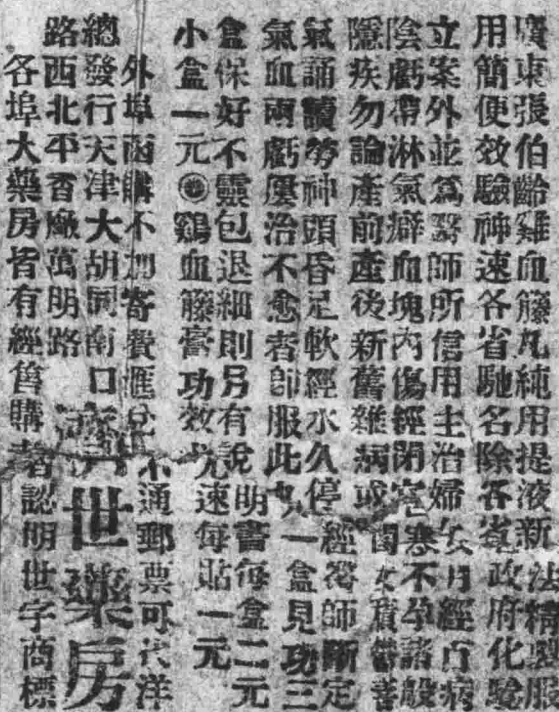 廣東張伯齡雞血籐丸純用提液新法精製服
用簡便效驗神速各省馳名除各省政府化驗
立案外並爲醫師所信用主治婦女月經百病
陰虧帶淋氣癖血塊內傷經閉宮寒不孕諸般
隱疾勿論產前產後新舊雜病或閨女積鬱善
氣誦讀勞神頭昏足軟經水久停經醫師斷定
氣血兩虧屢治不愈者師服此丸一盒見功三
盒保好不靈包退細則另有說明書每盒二元
小盒一元◉鷄血籐膏功效尤速每貼一元
外埠函購不加寄費匯兌不通郵票可代洋
總發行天津大胡同南口濟世藥房
路西北平香廠萬明路
各埠大藥房皆有經售購者認明世字商標